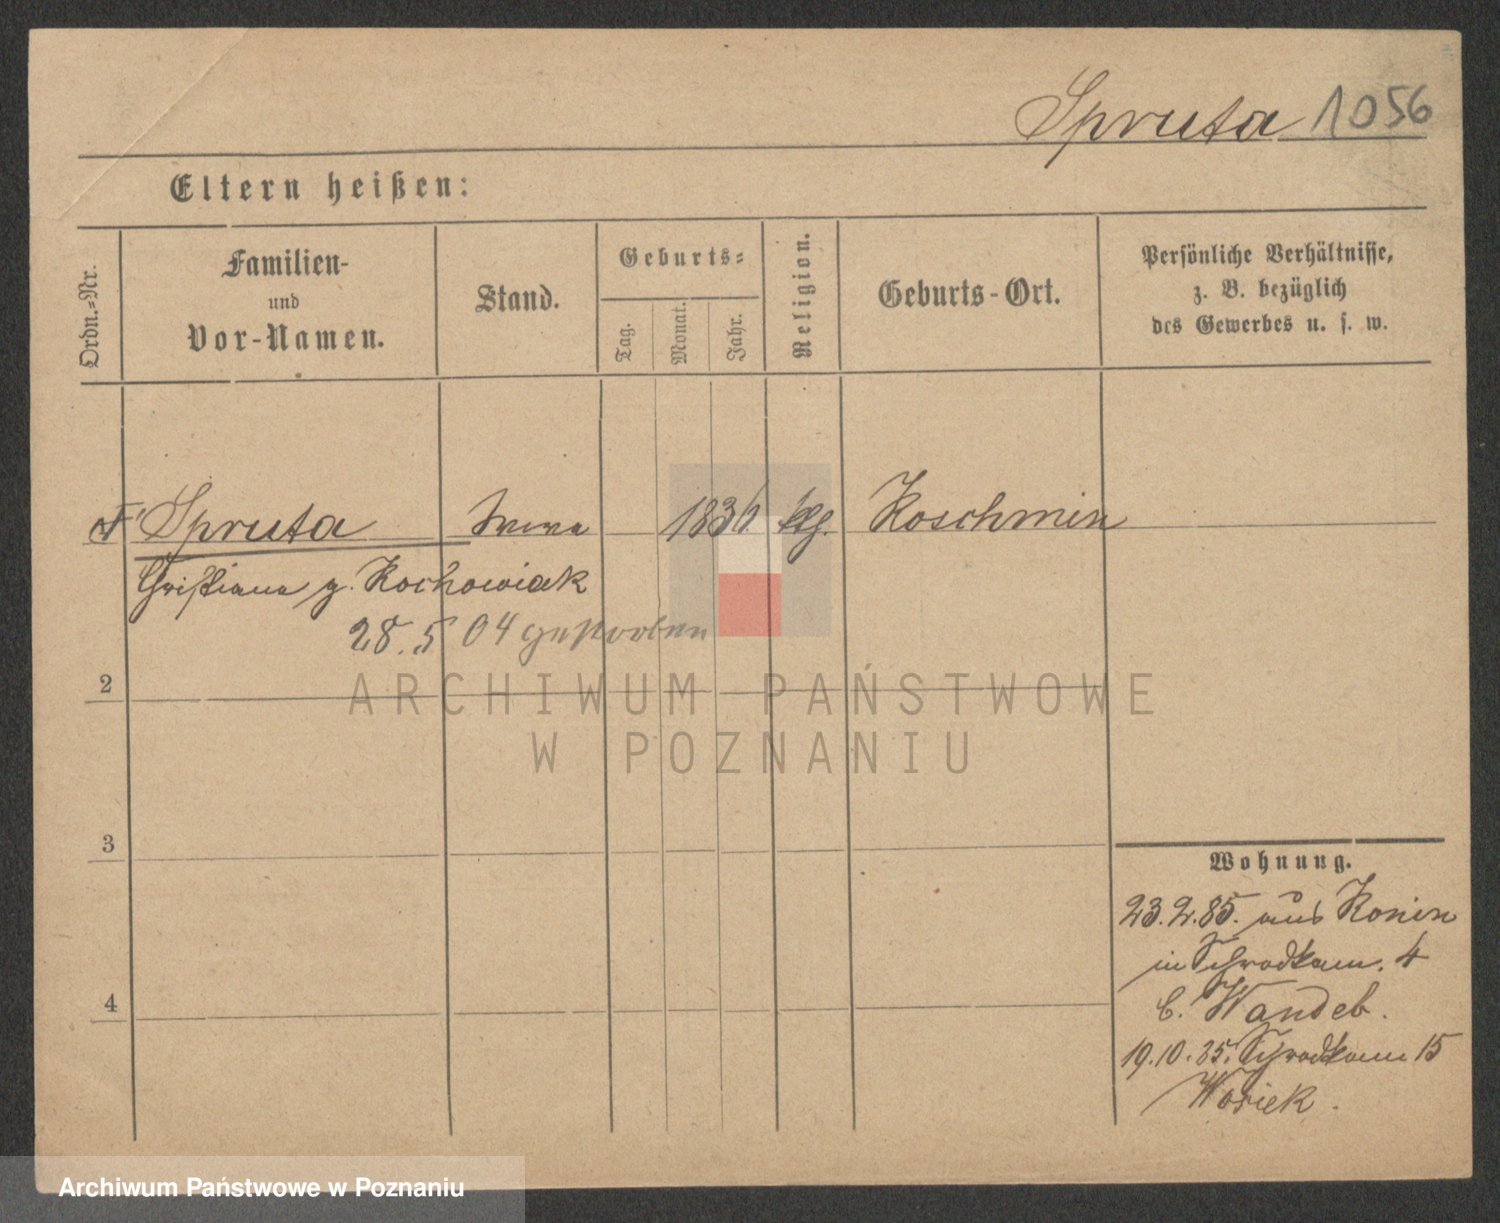 Spruta 1056
Eltern heißen:
Ordn.-Nr.
Familien-
und
Vor-Namen.
Stand.
Geburts-
Tag.
Monat.
Jahr.
Religion.
Geburts-Ort.
Persönliche Verhältnisse,
z. B. bezüglich
des Gewerbes u. s. w.
Spruta Wwe 1836 ktg. Koschmin
Christiana g. Kochowiak
28.5 04 gestorben
2
ARCHIWUM PAŃSTWOWE
W POZNANIU
3
4
Wohnung.
23.2.85. aus Konin
in Schrodkam. 4
b. Wandeb.
19.10.85. Schrodkam 15
Wosiek.
Archiwum Państwowe w Poznaniu